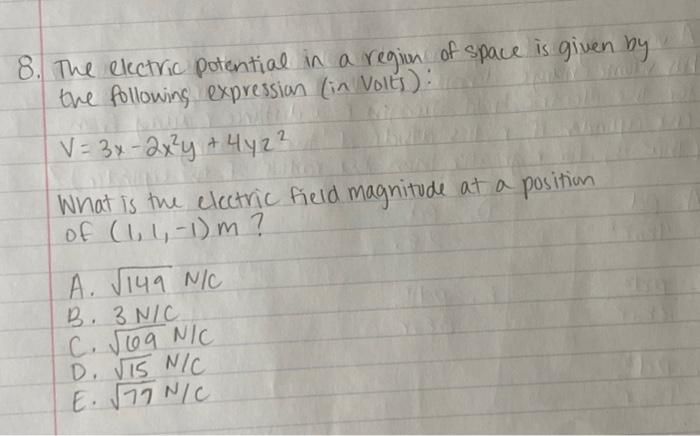 8. The electric potential in a region of space is given by
the following expression (in Volts):
V = 3x - 2x²y + 4yz²
What is the electric field magnitude at a position
of (1, 1, -1) m ?
A. √149 N/C
B. 3 N/C
C. √69 N/C
D. √15 N/C
E. √77 N/C